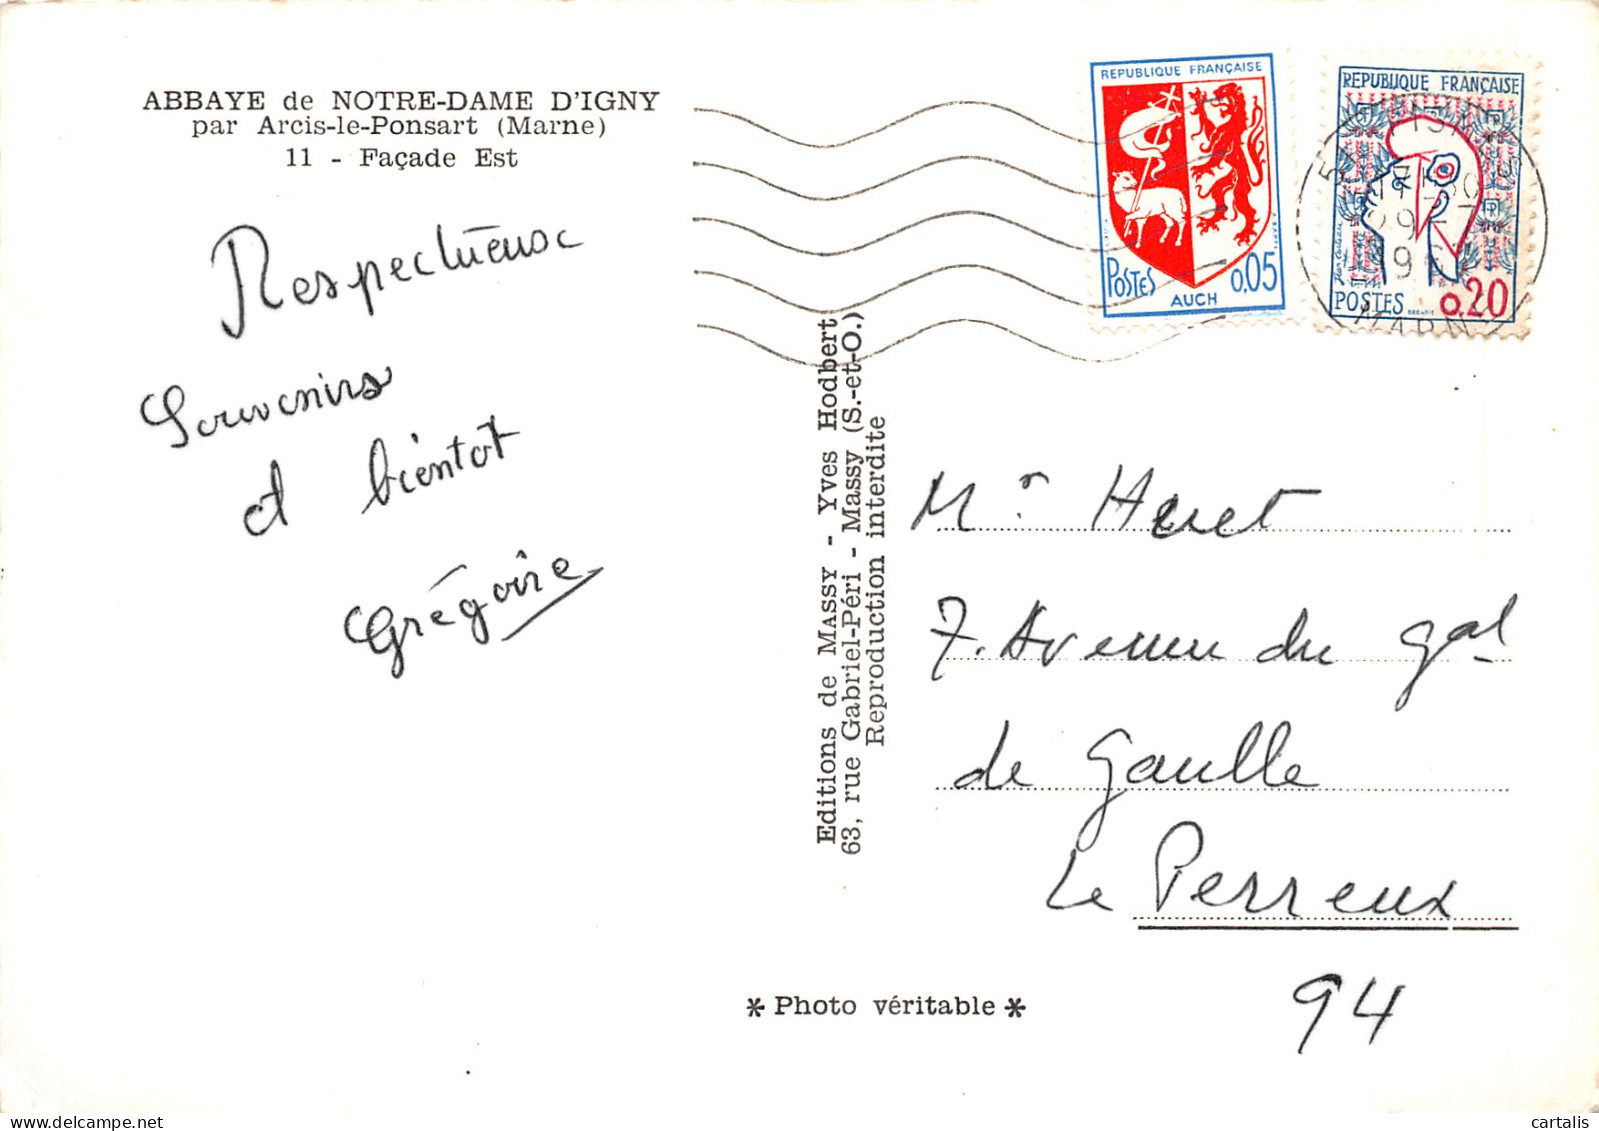 ABBAYE de NOTRE-DAME D'IGNY
par Arcis-le-Ponsart (Marne)
11 - Façade Est
Respectueux
Souvenirs
et bientot
Grégoire
REPUBLIQUE FRANÇAISE
POSTES 0,05
AUCH
REPUBLIQUE FRANÇAISE
POSTES 0.20
MARNE
Editions de MASSY - Yves Hodbert
63, rue Gabriel-Péri - Massy (S.-et-O.)
Reproduction interdite
Mr Heret
7. Avenue du gal
de Gaulle
Le Perreux
94
* Photo véritable *
cartalis